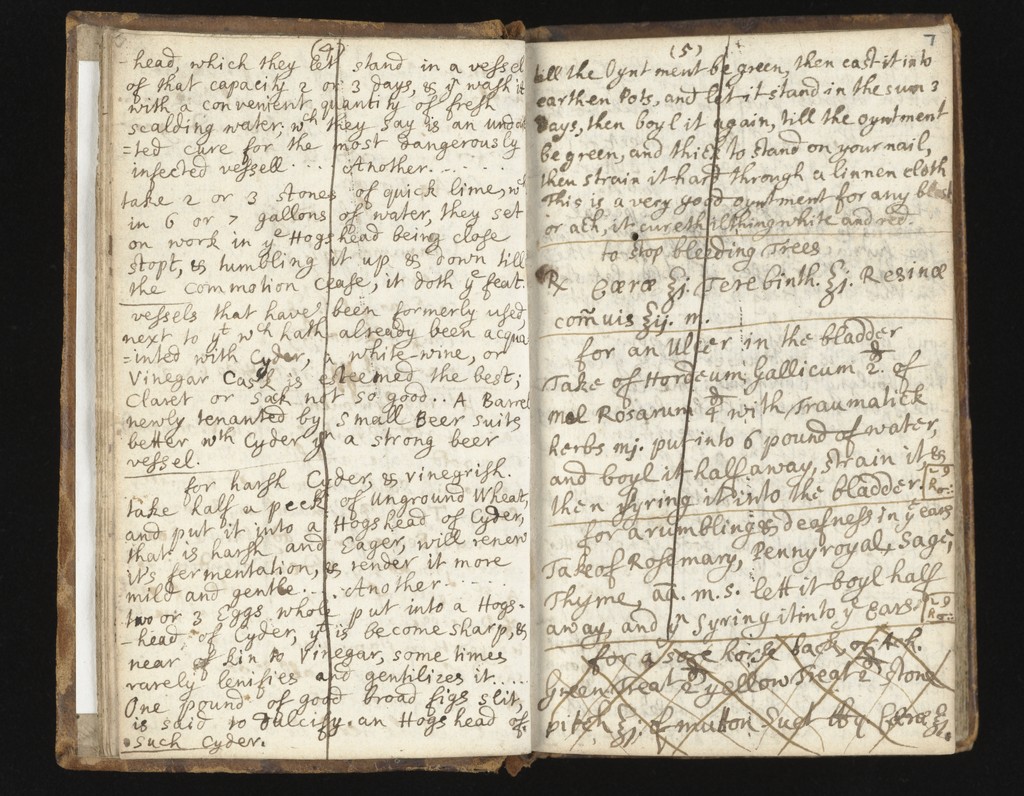 (4)
-head, which they let stand in a vessel
of that capacity 2 or 3 days, & yn wash it
with a convenient quantity of fresh
scalding water: wch they say is an undou
=ted cure for the most dangerously
infected vessell .... Another....
take 2 or 3 stones of quick lime, wch
in 6 or 7 gallons of water, they set
on work in ye Hogshead being close
stopt, & tumbling it up & down till
the commotion cease, it doth ye feat.
vessels that have been formerly used,
next to yt wch hath already been acqua
=inted with Cyder, a white-wine, or
Vinegar Cask is esteemed the best;
Claret or sack not so good.. A Barrel
newly tenanted by small Beer suits
better wth Cyder yn a strong beer
vessel.
for harsh Cyder, & vinegrish.
take half a peck of unground Wheat,
and put it into a Hogshead of Cyder,
that is harsh and Eager, will renew
it's fermentation, & render it more
mild and gentle... Another.....
two or 3 Eggs whole put into a Hogs-
-head of Cyder, yt is become sharp, &
near of kin to Vinegar, some times
rarely lenifies and gentilizes it.....
One pound of good broad figs slit,
is said to Dulcify an Hogshead of
such Cyder.
(5) 7
till the Oyntment be green, then cast it into
earthen Pots, and let it stand in the sun 3
days, then boyl it again, till the oyntment
be green, and thick to stand on your nail,
then strain it hard through a linnen cloth
This is a very good oyntment for any
or ach, it cureth itthing white and red.
to stop bleeding Trees
Rx Cæræ ℥j. Terebinth. ℥j. Resinæ
com̃uis ℥ij. m.
for an Ulser in the bladder
Take of Hordeum Gallicum ℔ 2. of
mel Rosarum ℔ 4 with Traumatick
herbs mj. put into 6 pound of water,
and boyl it half away, strain it &
then syring it into the bladder.
for a rumbling & deafness in ye ears
Take of Rosemary, Pennyroyal, Sage,
Thyme, aã. m. s. lett it boyl half
away, and yn syring it into ye Ears
for a sore horse back of Ach.
Green Treat yellow Treat Stone
pitch ℥j. of mutton Suet Cæræ